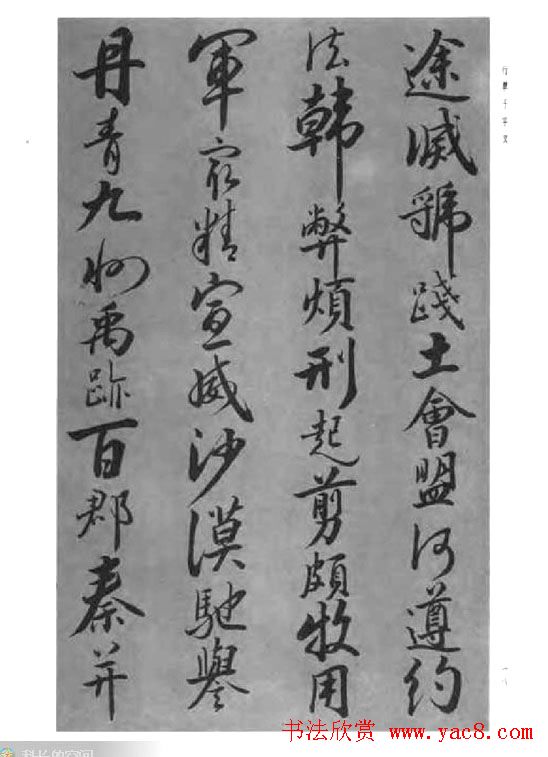 途滅虢踐土會盟何遵約
法韓弊煩刑起翦頗牧用
軍冣精宣威沙漠馳譽
丹青九州禹跡百郡秦并
行書千字文
一八
书法欣赏 www.yac8.com
科长的空间